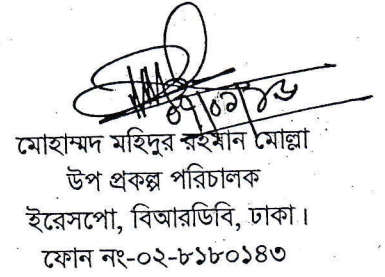 মোহাম্মদ মহিদুর রহমান মোল্লা
উপ প্রকল্প পরিচালক
ইরেসপো, বিআরডিবি, ঢাকা।
ফোন নং-০২-৮১৮০১৪৩